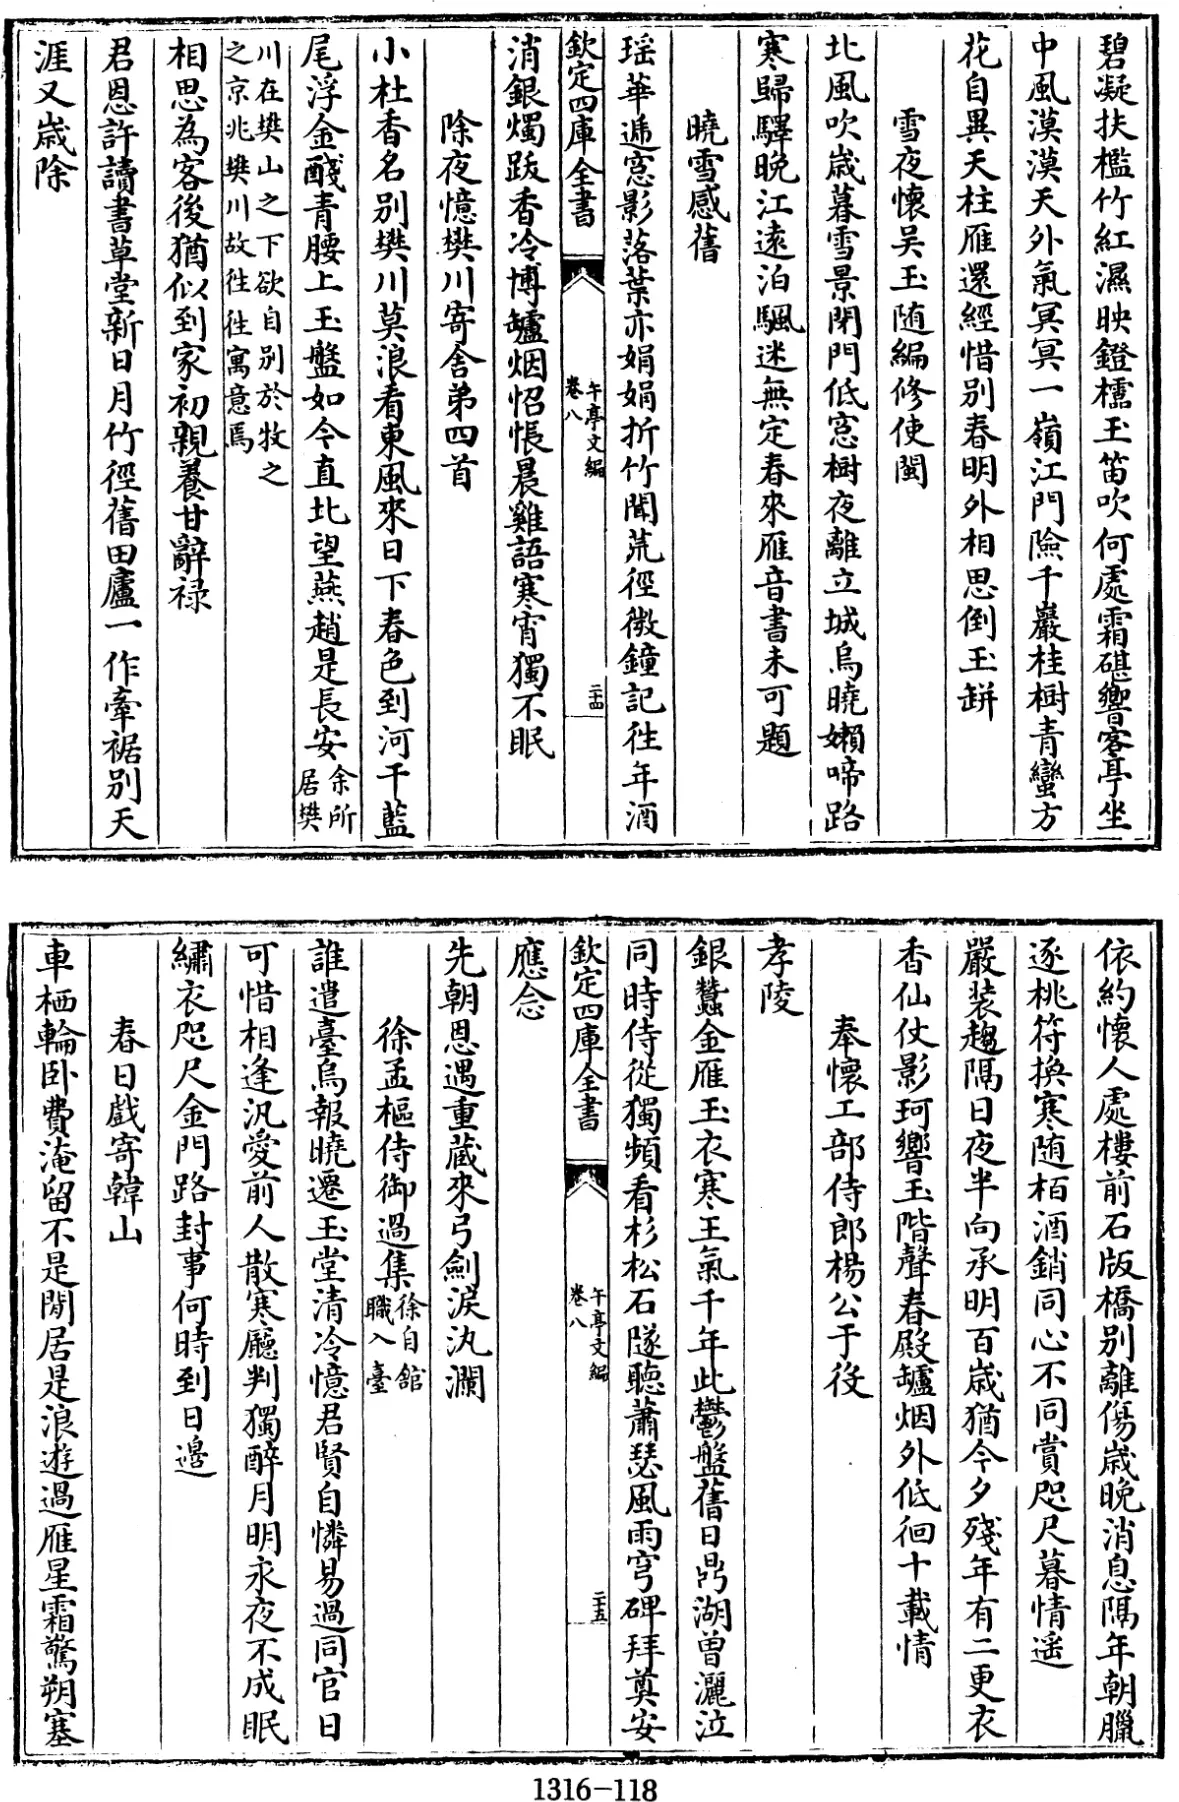 碧凝扶檻竹紅濕映鐙檽玉笛吹何處霜碪響客亭坐
中風漠漠天外氣冥冥一嶺江門險千巖桂樹青蠻方
花自異天柱雁還經惜別春明外相思倒玉缾
雪夜懷吴玉随編修使閩
北風吹歲暮雪景閉門低窓樹夜離立城烏曉嬾啼路
寒歸驛晚江遠泊颿迷無定春來雁音書未可題
曉雪感舊
瑶華逓窓影落葉亦娟娟折竹聞荒徑微鐘記往年酒
欽定四庫全書
午亭文編
卷八
二十四
消銀燭跋香冷博鑪烟怊悵晨雞語寒宵獨不眠
除夜憶樊川寄舍弟四首
小杜香名別樊川莫浪看東風來日下春色到河干藍
尾浮金醆青腰上玉盤如今直北望燕趙是長安
余所
居樊
川在樊山之下欲自別於牧之
之京兆樊川故往往寓意焉
相思為客後猶似到家初親養甘辭禄
君恩許讀書草堂新日月竹徑舊田廬一作牽裾別天
涯又歲除
依約懷人處樓前石版橋別離傷歲晚消息隔年朝臘
逐桃符換寒随栢酒銷同心不同賞咫尺暮情遥
嚴装趨隔日夜半向承明百歲猶今夕殘年有二更衣
香仙仗影珂響玉階聲春殿鑪烟外低徊十載情
奉懷工部侍郎楊公于役
孝陵
銀蠶金雁玉衣寒王氣千年此鬱盤舊日鼎湖曾灑泣
同時侍從獨頻看杉松石隧聽蕭瑟風雨穹碑拜奠安
欽定四庫全書
午亭文編
卷八
二十五
應念
先朝恩遇重蕆來弓劍淚汍瀾
徐孟樞侍御過集
徐自館
職入臺
誰遣臺烏報曉遷玉堂清冷憶君賢自憐易過同官日
可惜相逢汎愛前人散寒廳判獨醉月明永夜不成眠
繡衣咫尺金門路封事何時到日邉
春日戲寄韓山
車栖輪卧費淹留不是閒居是浪遊過雁星霜驚朔塞
1316-118